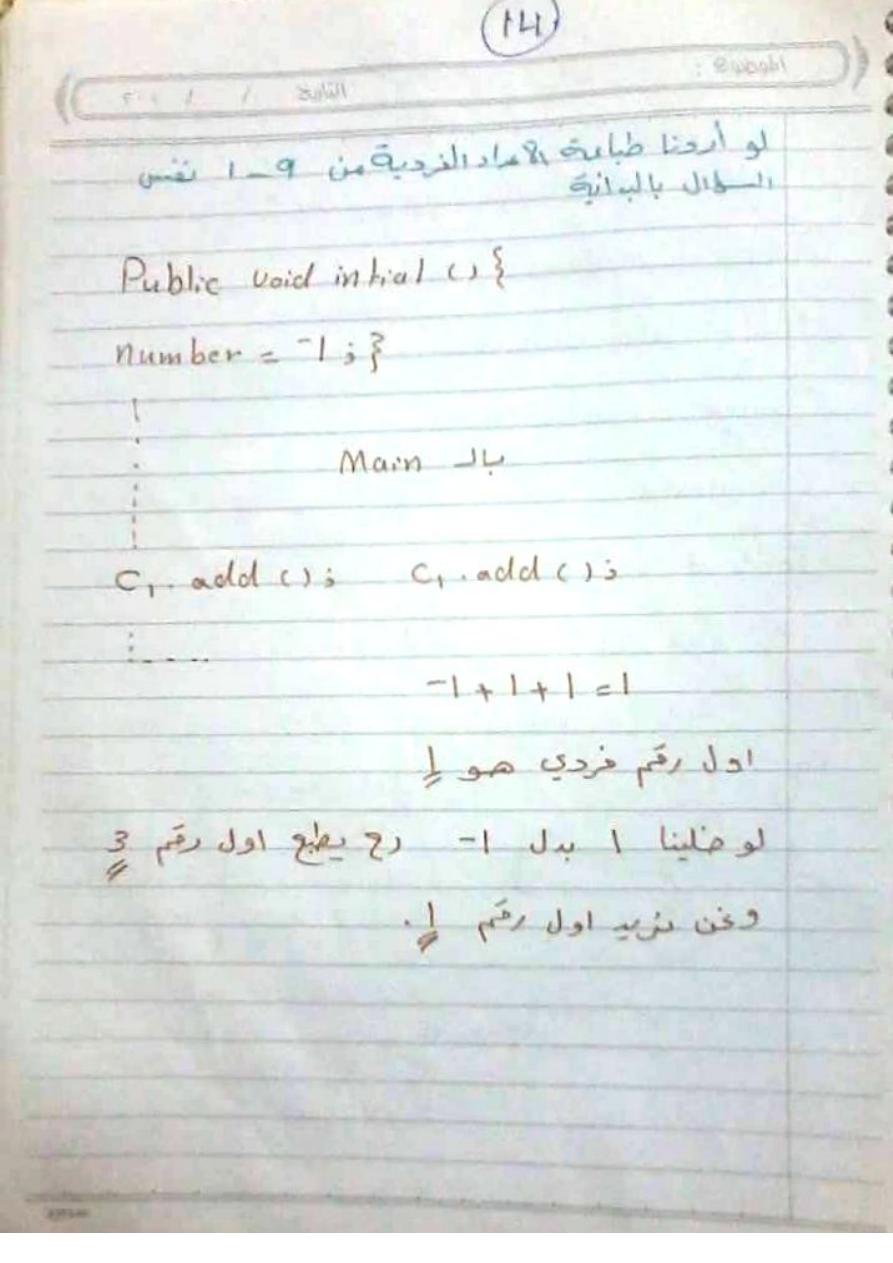 14
الموضوع :
التاريخ / / ٢٠
لو أردنا طباعة الأعداد الفردية من 9 - 1 نفس
السؤال بالبداية
Public void intial () {
number = -1 ; }
بالـ Main
C1. add () ; C1. add () ;
-1 + 1 + 1 = 1
اول رقم فردي هو 1
لو خلينا 1 بدل -1 رح يطبع اول رقم 3
ونحن نريد اول رقم 1.